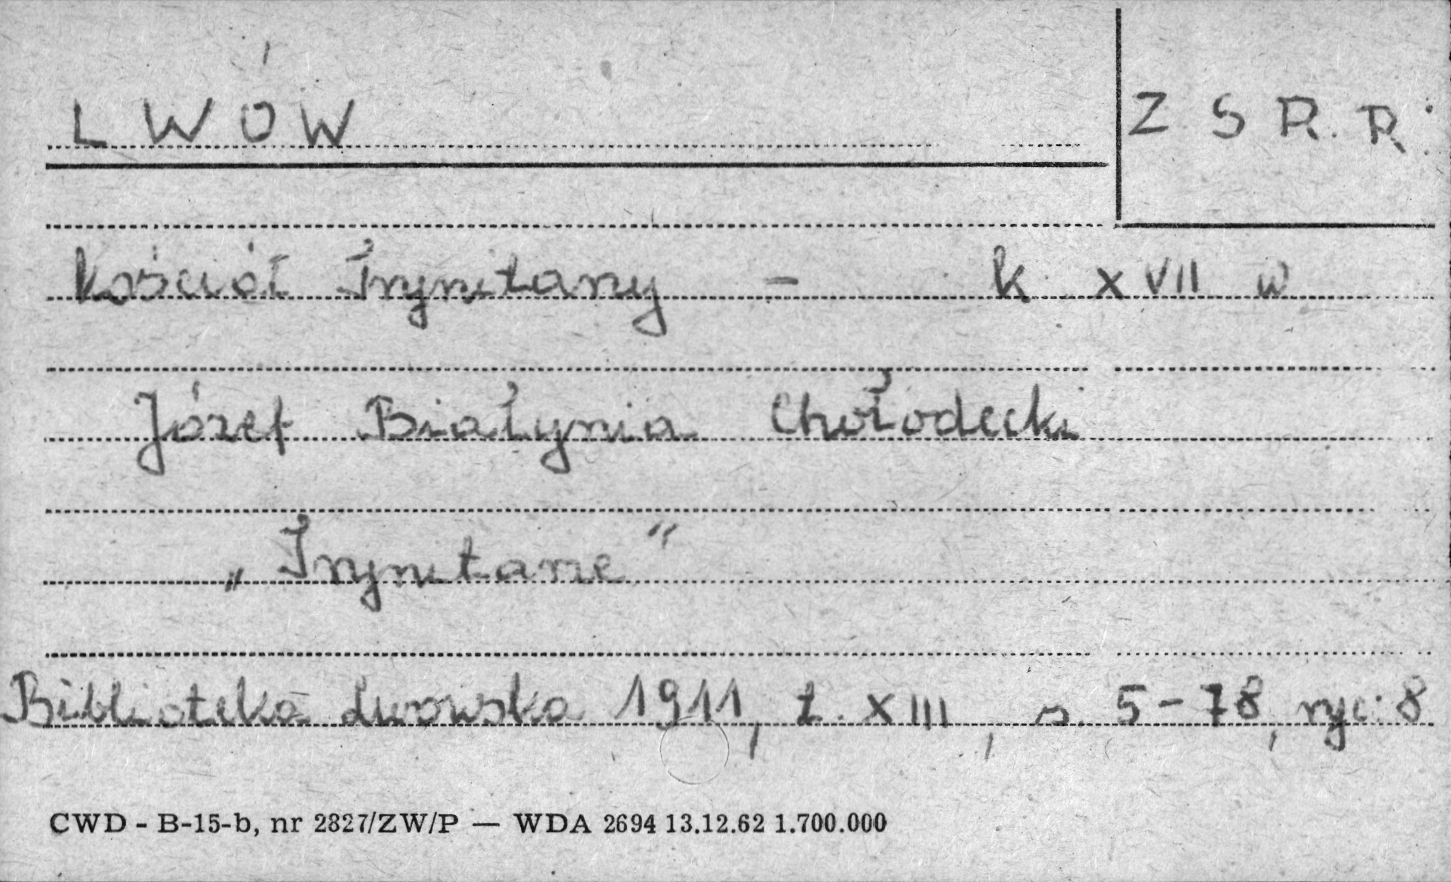 LWÓW
Z S R. R.
Kościół Trynitarzy - k XVII w
Józef Białynia Chołodecki
„Trynitarze"
Biblioteka Lwowska 1911, t. XIII, s. 5-78, ryc. 8
CWD - B-15-b, nr 2827/ZW/P — WDA 2694 13.12.62 1.700.000